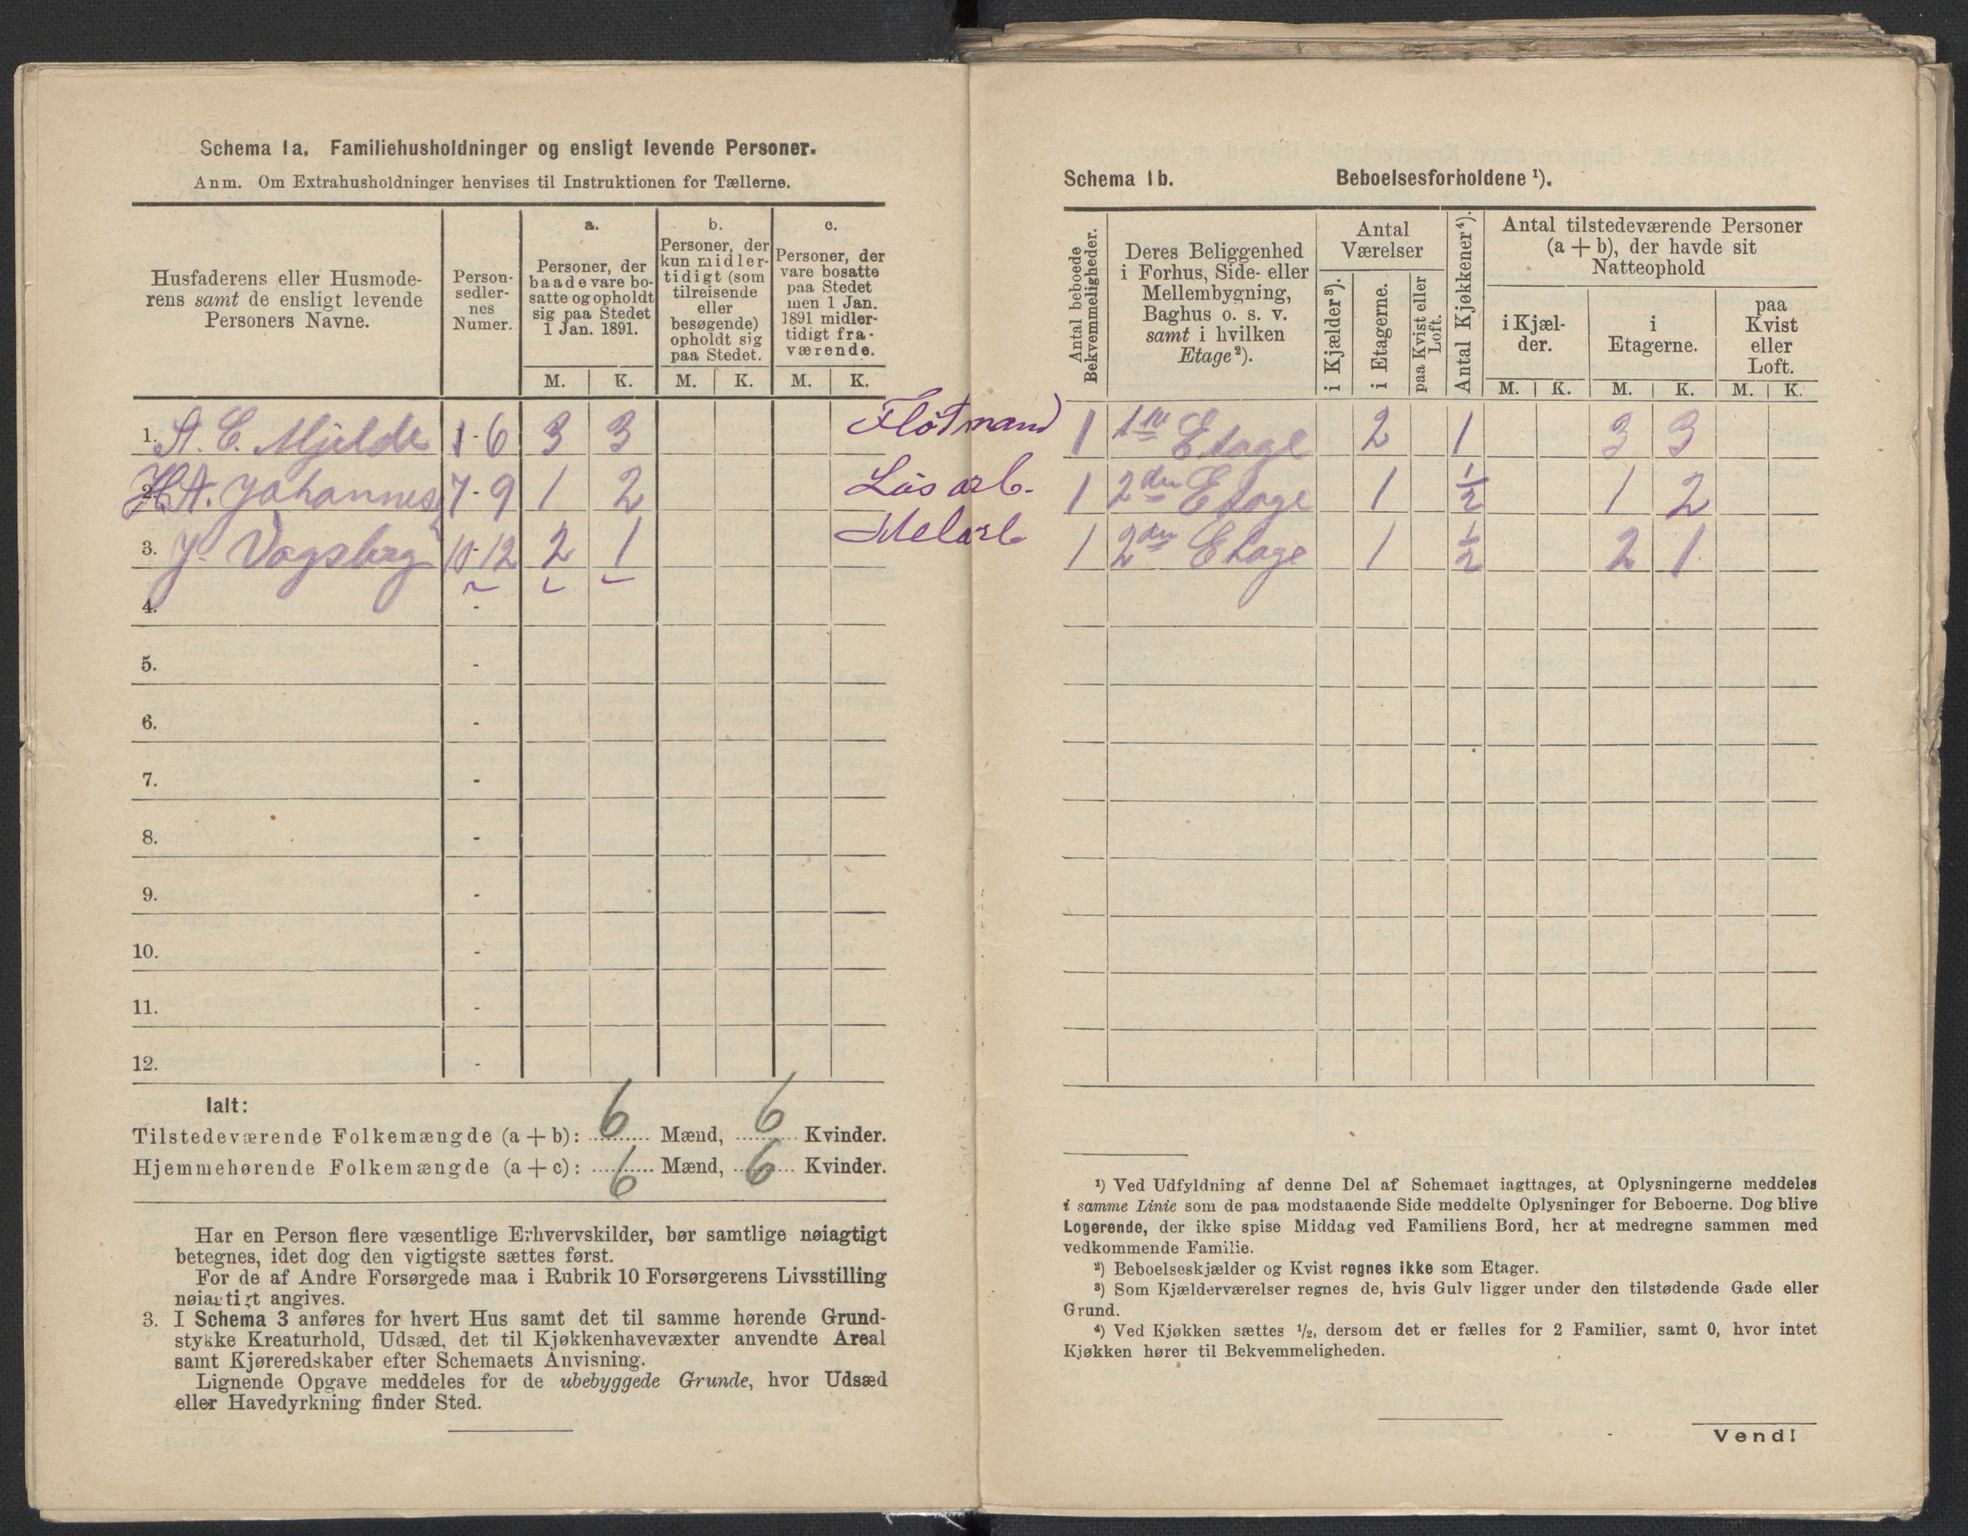 Schema 1a. Familiehusholdninger og ensligt levende Personer.
Anm. Om Extrahusholdninger henvises til Instruktionen for Tællerne.
Husfaderens eller Husmode-
rens samt de ensligt levende
Personers Navne.
Person-
sedler-
nes
Numer.
a.
Personer, der
baade vare bo-
satte og opholdt
sig paa Stedet
1 Jan. 1891.
b.
Personer, der
kun midler-
tidigt (som
tilreisende
eller
besøgende)
opholdt sig
paa Stedet.
c.
Personer, der
vare bosatte
paa Stedet
men 1 Jan.
1891 midler-
tidigt fra-
værende.
M. K. M. K. M. K.
1. A. C. Mjelde 1-6 3 3 Flötmand
2. H A. Johannes 7-9 1 2 Lös arb.
3. J. Vogsberg 10-12 2 1
4. -
5. -
6. -
7. -
8. -
9. -
10. -
11. -
12. -
Ialt:
Tilstedeværende Folkemængde (a + b): 6 Mænd, 6 Kvinder.
Hjemmehørende Folkemængde (a + c): 6 Mænd, 6 Kvinder.
Har en Person flere væsentlige Erhvervskilder, bør samtlige nøiagtigt
betegnes, idet dog den vigtigste sættes først.
For de af Andre Forsørgede maa i Rubrik 10 Forsørgerens Livsstilling
nøiagtigt angives.
3. I Schema 3 anføres for hvert Hus samt det til samme hørende Grund-
stykke Kreaturhold, Udsæd, det til Kjøkkenhavevæxter anvendte Areal
samt Kjøreredskaber efter Schemaets Anvisning.
Lignende Opgave meddeles for de ubebyggede Grunde, hvor Udsæd
eller Havedyrkning finder Sted.
Schema 1b. Beboelsesforholdene ¹).
Antal beboede
Bekvemmeligheder.
Deres Beliggenhed
i Forhus, Side- eller
Mellembygning,
Baghus o. s. v.
samt i hvilken
Etage ²).
Antal
Værelser
i Kjælder ³).
i Etagerne.
paa Kvist eller
Loft.
Antal Kjøkkener ⁴).
Antal tilstedeværende Personer
(a + b), der havde sit
Natteophold
i Kjæl-
der.
i
Etagerne.
paa
Kvist
eller
Loft.
M. K. M. K. M. K.
1 1ste Etage 2 1 3 3
1 2den Etage 1 ½ 1 2
1 2den Etage 1 ½ 2 1
¹) Ved Udfyldning af denne Del af Schemaet iagttages, at Oplysningerne meddeles
i samme Linie som de paa modstaaende Side meddelte Oplysninger for Beboerne. Dog blive
Logerende, der ikke spise Middag ved Familiens Bord, her at medregne sammen med
vedkommende Familie.
²) Beboelseskjælder og Kvist regnes ikke som Etager.
³) Som Kjælderværelser regnes de, hvis Gulv ligger under den tilstødende Gade eller
Grund.
⁴) Ved Kjøkken sættes ½, dersom det er fælles for 2 Familier, samt 0, hvor intet
Kjøkken hører til Bekvemmeligheden.
Vend!